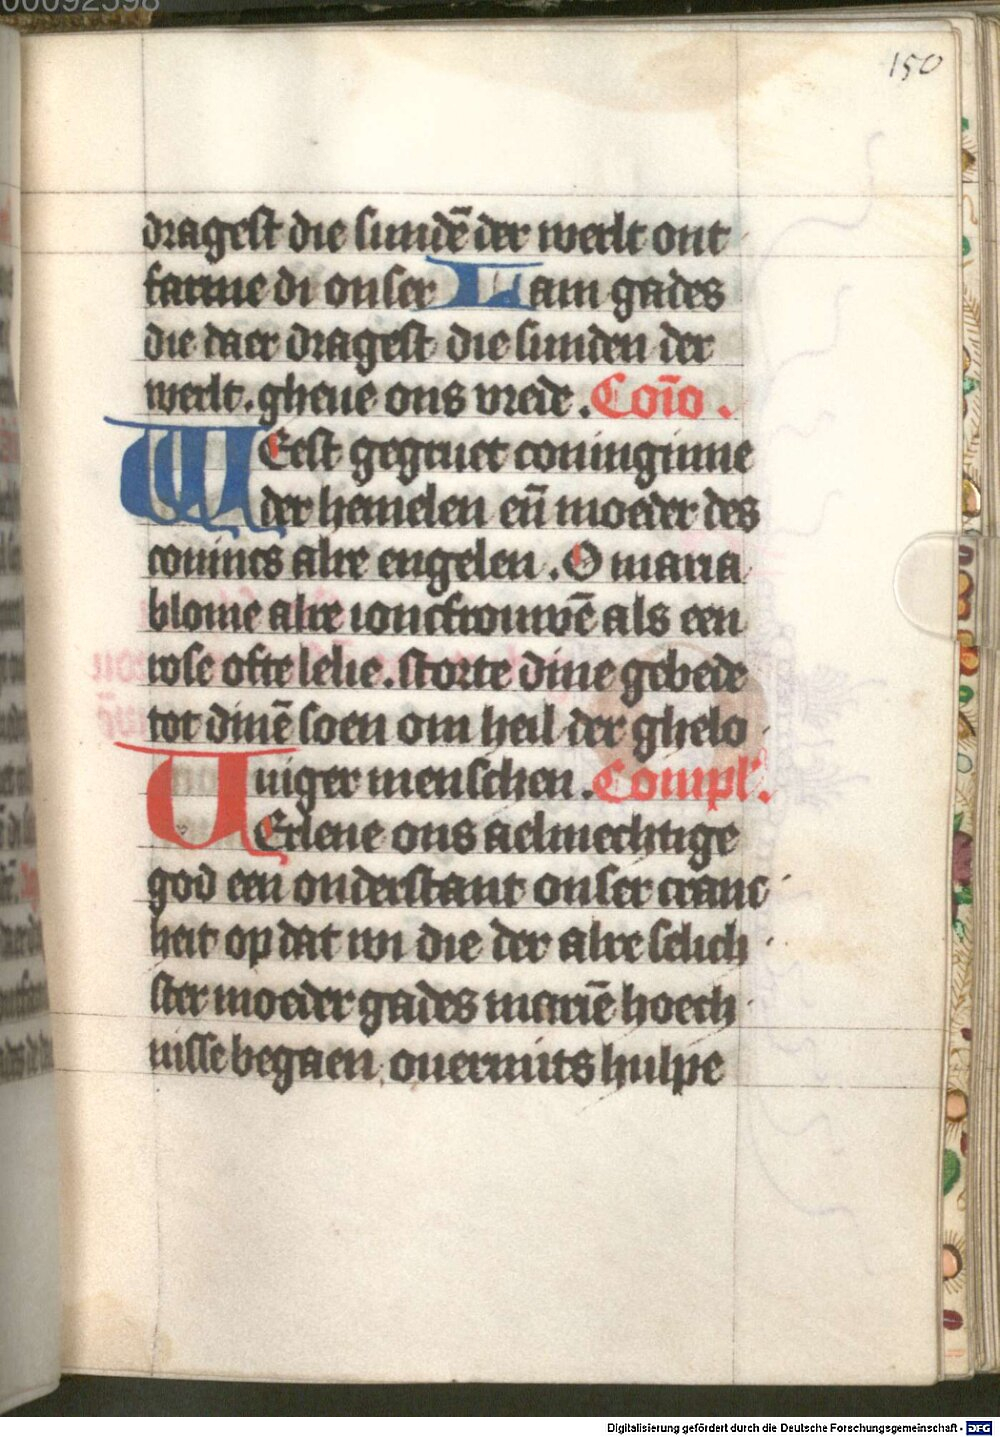 00092598
150
dragest die sundē der werlt ont
farme di onser Lam gades
die daer dragest die sunden der
werlt. gheue ons vrede. Coīo.
WEest gegruet coninginne
der hemelen eñ moeder des
conincs alre engelen. O maria
blome alre ioncfrouwē als een
rose ofte lelie. storte dine gebede
tot dinē soen om heil der ghelo
uiger menschen. Compl'.
VErlene ons aelmechtige
god een onderstant onser cranc
heit op dat wi die der alre selich
ster moeder gades mariē hoech
nisse begaen ouermits hulpe
Digitalisierung gefördert durch die Deutsche Forschungsgemeinschaft - DFG